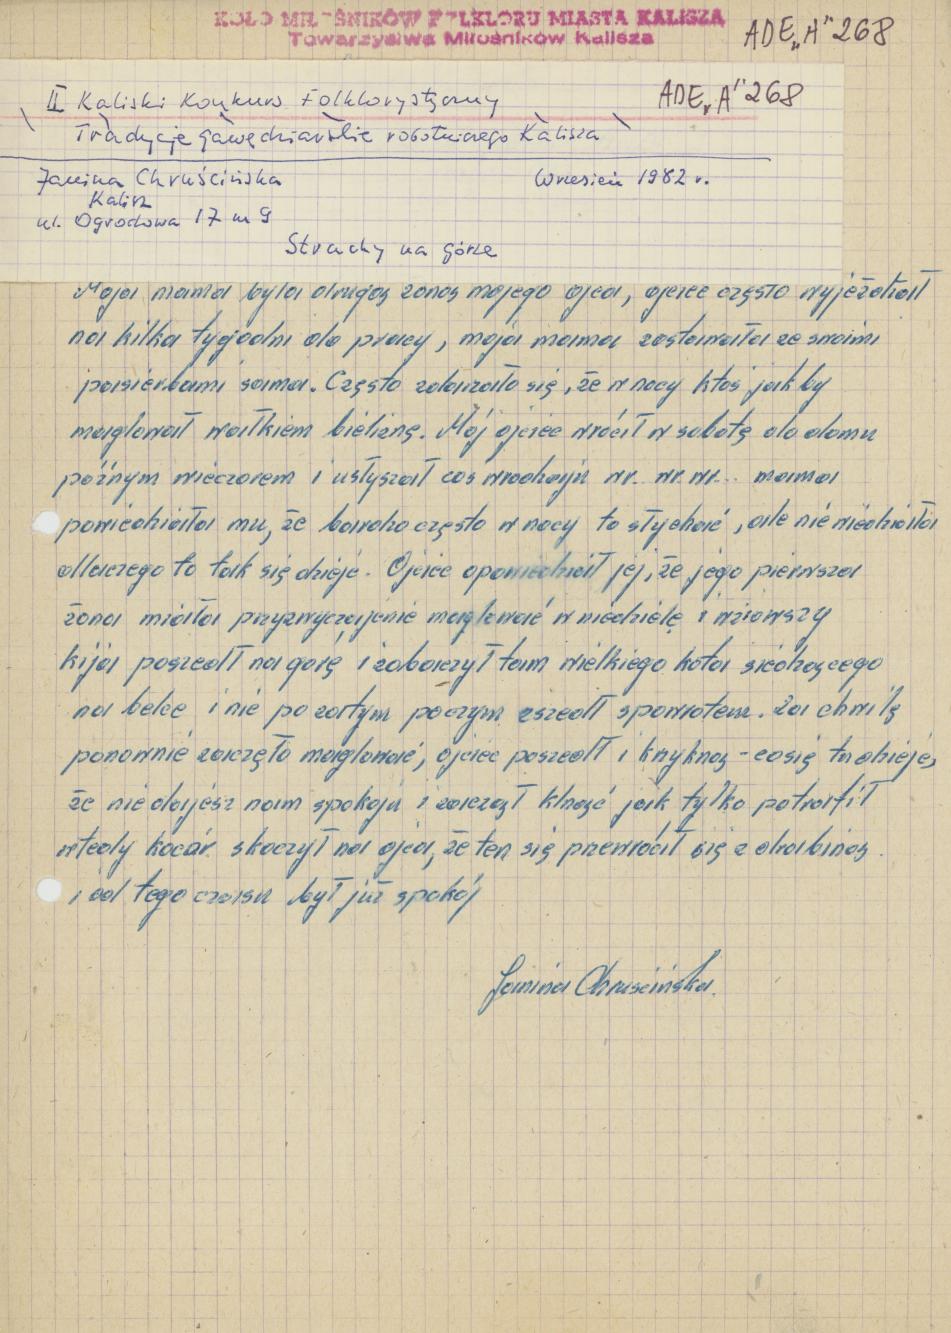 KOŁO MIŁOŚNIKÓW FOLKLORU MIASTA KALISZA
Towarzystwa Miłośników Kalisza
ADE„A” 268
II Kaliski Konkurs Folklorystyczny
ADE„A” 268
Tradycje gawędziarskie robotniczego Kalisza
Janina Chruścińska
Wrzesień 1982 r.
Kalisz
ul. Ogrodowa 17 m 9
Strachy na górze
Moja mama była drugą żoną mojego ojca, ojciec często wyjeżdżał
na kilka tygodni do pracy, moja mama zostawała ze swoimi
pasierbami sama. Często zdarzało się, że w nocy ktoś jak by
maglował wałkiem bieliznę. Mój ojciec wrócił w sobotę do domu
późnym wieczorem i usłyszał coś wrodzaju wr.. wr. wr... mama
powiedziała mu, że bardzo często w nocy to słychać, ale nie wiedziała
dlaczego to tak się dzieje. Ojciec opowiedział jej, że jego pierwsza
żona miała przyzwyczajenie maglować w niedzielę i wziąwszy
kija poszedł na górę i zobaczył tam wielkiego kota siedzącego
na belce i nie po żartym poczym zszedł spowrotem. Za chwilę
ponownie zaczęło maglować, ojciec poszedł i krzyknął - co się tu dzieje,
że nie dajesz nam spokoju i zaczął kląć jak tylko potrafił
wtedy kocur skoczył na ojca, że ten się przewrócił się z drabiną.
i od tego czasu był już spokój
Janina Chruścińska.